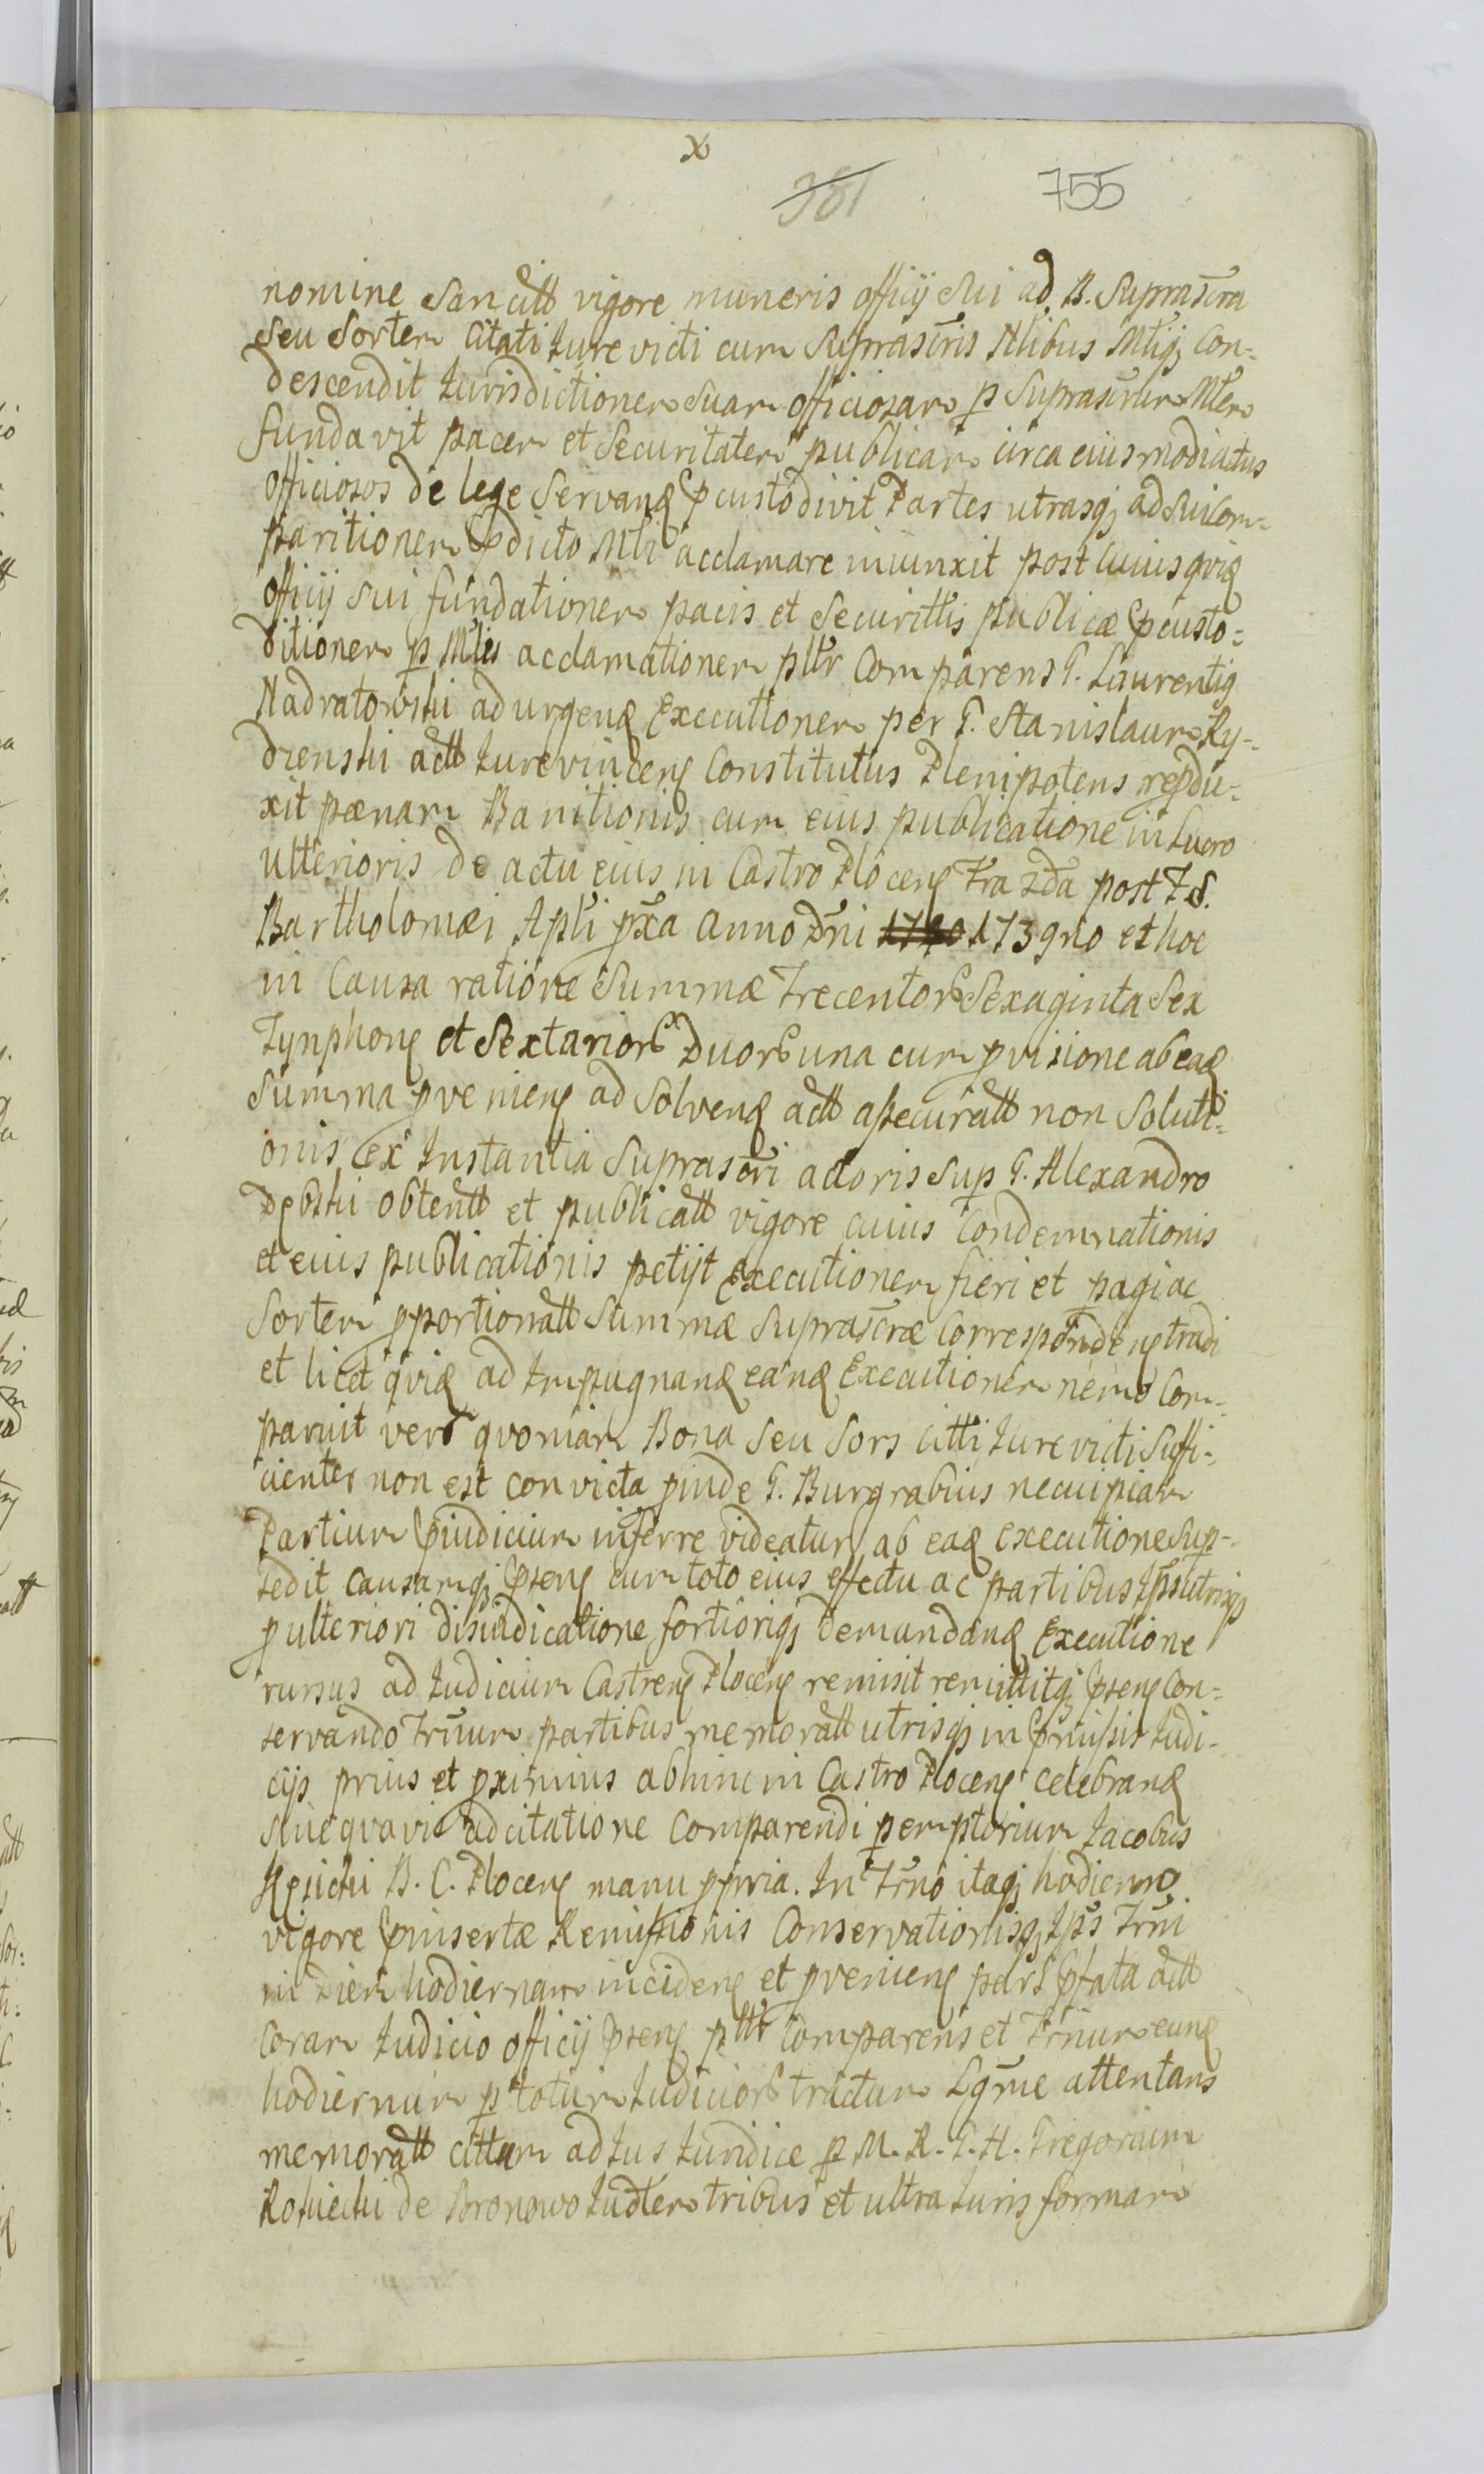 x
381 755
nomine Sancitt vigore muneris officij Sui ad B. Suprascra
Seu Sortem Citati Jure victi cum Suprascris Nlibus Mliq; Con-
descendit Jurisdictionem Suam officiosam p Suprascrum Mlem
fundavit pacem et Securitatem publicam circa eiusmodi actus
officiosos de lege Servand pcustodivit Partes utrasq; ad Sui Com-
paritionem pdicto Mli acclamare iniunxit post cuius qvid
officij Sui fundationem pacis et Securittis publicæ pcusto-
ditionem p Mles acclamationem pltr Comparens G. Laurentig
Nadratowski ad urgend Executionem per G. Stanislaum Ky-
drenski actt Jurevincens Constitutus Plenipotens repdu-
xit pænam Banitionis cum eius publicatione in Lucro
ulterioris de actu eius in Castro Plocens Fra 2da post F S.
Bartholomæi Apli pxa Anno Dni 1740 1739no et hoc
in Causa ratione Summæ Trecentor Sexaginta Sex
Tynphons et Sextarior Duor una cum pvisione ab ead
Summa pveniens ad Solvend actt assecuratt non Soluti-
onis ex Instantia Suprascri actoris Sup G. Alexandro
Dębski obtentt et publicatt vigore cuius Condemnationis
et eius publicationis petijt Executionem fieri et pagi ac
Sortem pportionatt Summæ Suprascræ Correspondens tradi
et licet qvid ad Impugnand eand Executionem nemo Com-
paruit vero qvoniam Bona Seu Sors citti Jure victi Suffi-
cienter non est convicta pinde G. Burgrabius necuipiam
Partium piudicium inferre videatur ab ead Executione Sup-
sedit Causamq; psens cum toto eius effectu ac partibus Ipsis utrisq;
p ulteriori disiudicatione fortioriq; demandand Executione
rursus ad Judicium Castrens Plocens remisit remittitq; psens Con-
servando Trnum partibus memoratt utrisq; in pmissis Judi-
cijs prius et pximius abhinc in Castro Plocens celebrand
Sine qvavis adcitatione Comparendi peremptorium Jacobus
Kęsicki B. C. Plocens manu ppria. In Trno itaq; hodierno
vigore pinsertæ Remissionis Conservationisq; Ips Trni
in diem hodiernam incidens et pveniens pars pfata actt
Coram Judicio officij psens pltr Comparens et Trnum eund
hodiernum p totum Judicior tractum Lgme attentans
memoratt cittum ad Jus Juridice p M. R. G. H. Gregorium
Rokicki de Bronowo Judlem tribus et ultra Juris formam